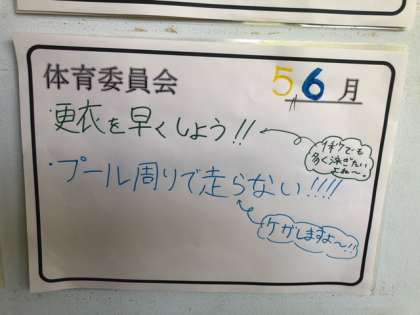 体育委員会 5,6月
・更衣を早くしよう!!
1秒でも
多く泳ぎたい
よね〜。
・プール周りで走らない!!!!
ケガしますよ〜!!